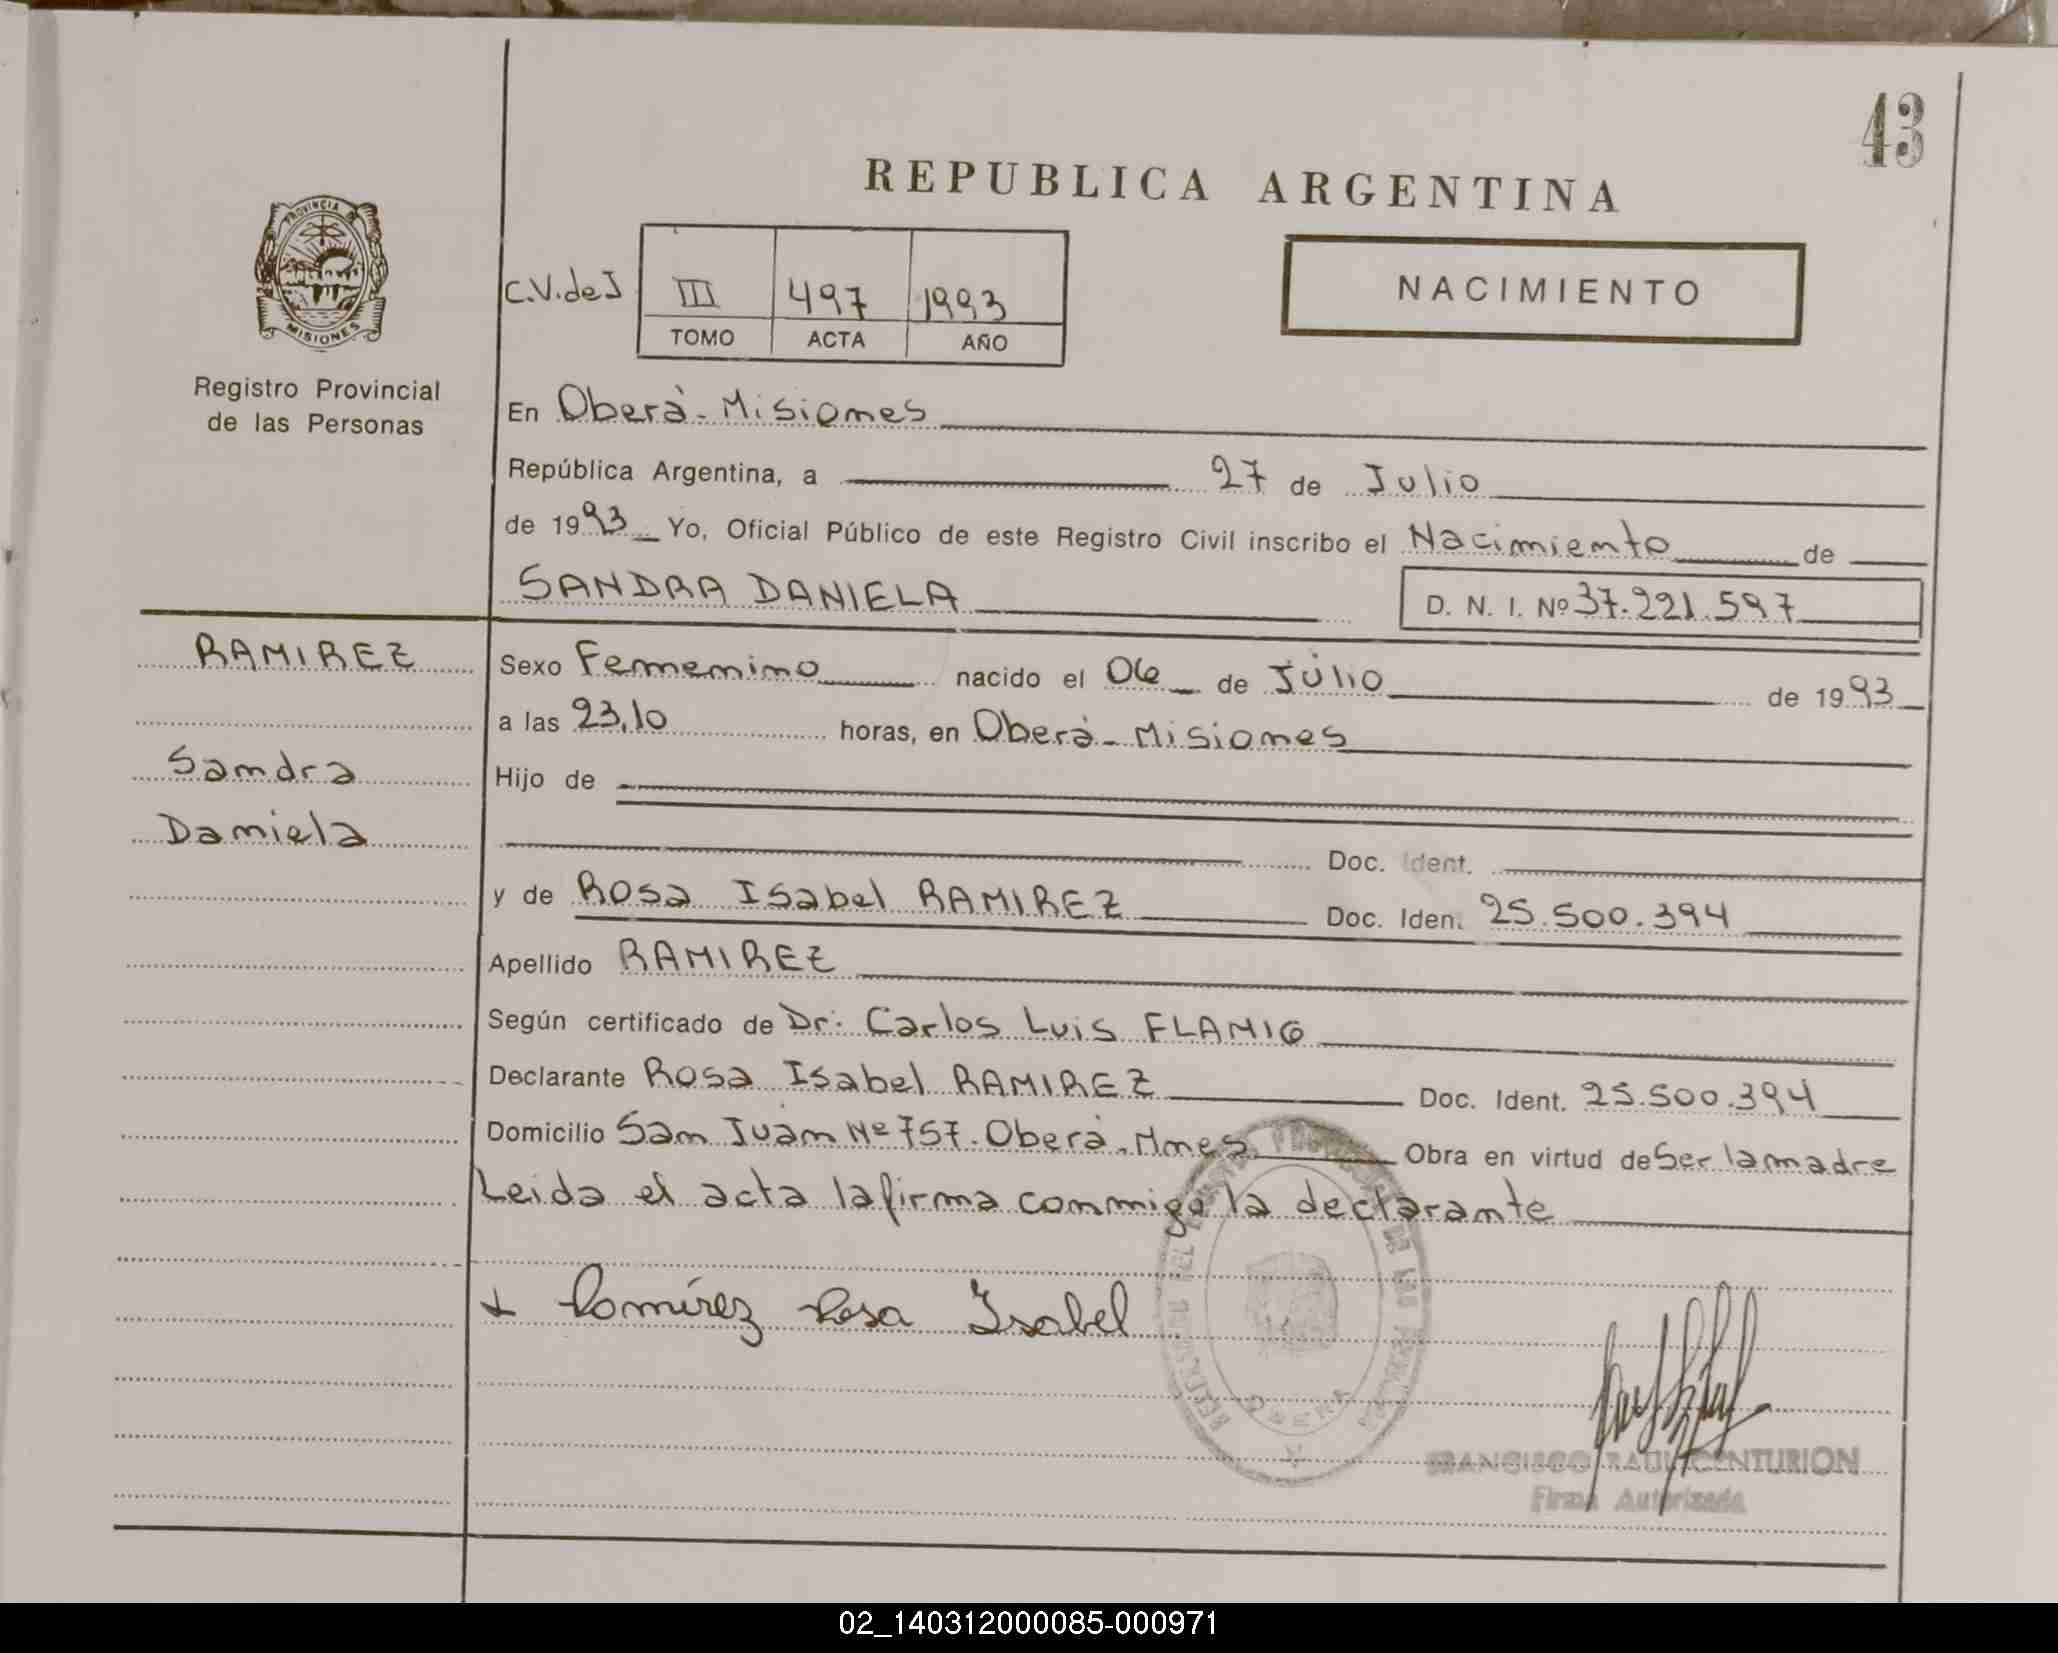 43
REPUBLICA ARGENTINA
PROVINCIA DE
MISIONES
Registro Provincial
de las Personas
NACIMIENTO
C.V.deJ III 497 1993
TOMO ACTA AÑO
En Oberà - Misiones
República Argentina, a 27 de Julio
de 1993 Yo, Oficial Público de este Registro Civil inscribo el Nacimiento de
SANDRA DANIELA D. N. I. Nº 37.221.597
RAMIREZ
Sandra
Daniela
Sexo Femenino nacido el 06 de Júlio de 1993
a las 23,10 horas, en Oberà - Misiones
Hijo de
Doc. Ident.
y de Rosa Isabel RAMIREZ Doc. Iden. 25.500.394
Apellido RAMIREZ
Según certificado de Dr: Carlos Luis FLAMIG
Declarante Rosa Isabel RAMIREZ Doc. Ident. 25.500.394
Domicilio San Juan Nº 757. Oberà. Mnes Obra en virtud de Ser la madre
Leida el acta la firma conmigo la declarante
Ramírez Rosa Isabel
OBERA
FRANCISCO RAUL CENTURION
Firma Autorizada
02_140312000085-000971